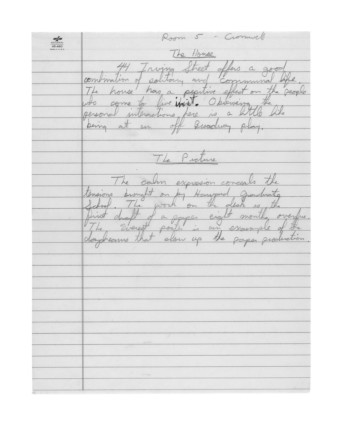 Room 5 - Cromwell
The House
44 Irving Street offers a good
combination of solitary and communal life.
The house has a positive effect on the people
who come to live in it. Observing the
personal interactions here is a little like
being at an off Broadway play.
The Picture
The calm expression conceals the
tensions brought on by Harvard Graduate
School. The work on the desk is the
first draft of a paper eight months overdue.
The "sweet" is an example of the
daydreams that slow up the paper production